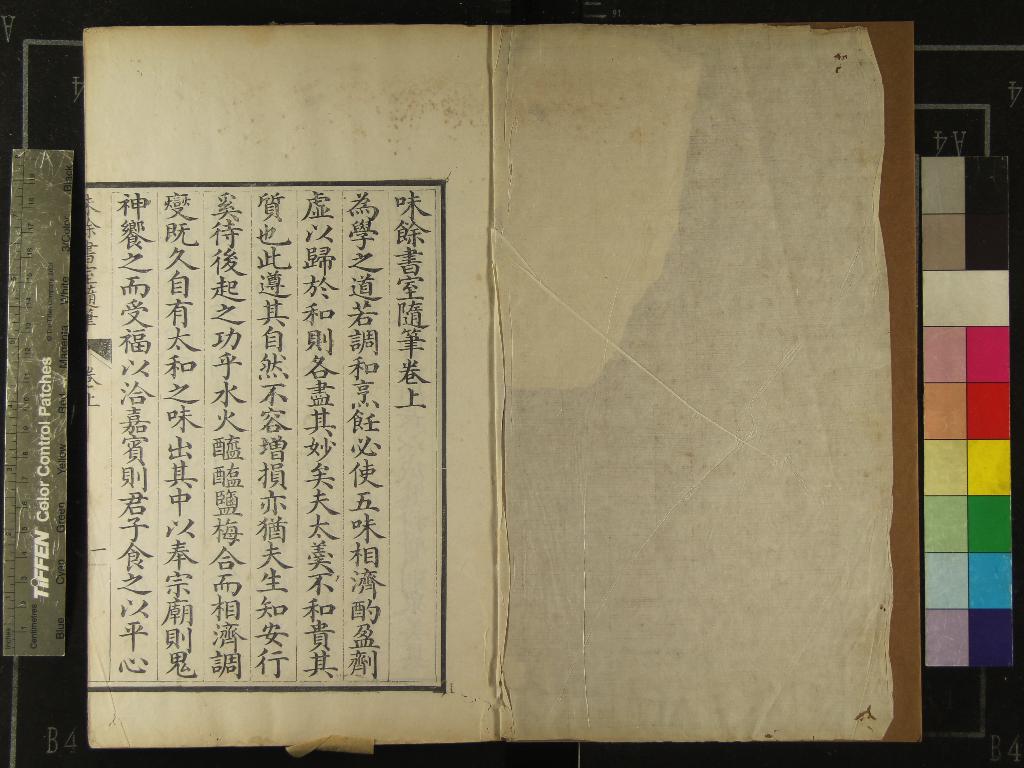 味餘書室隨筆卷上
為學之道若調和烹飪必使五味相濟酌盈劑
虛以歸於和則各盡其妙矣夫太羹不和貴其
質也此遵其自然不容增損亦猶夫生知安行
奚待後起之功乎水火醯醢鹽梅合而相濟調
燮既久自有太和之味出其中以奉宗廟則鬼
神饗之而受福以治嘉賓則君子食之以平心
味餘書室隨筆
卷上
一
TIFFEN Color Control Patches
Blue
Cyan
Green
Yellow
Red
Magenta
White
3/Color
Black
Centimetres
Inches
A4
B4
B4